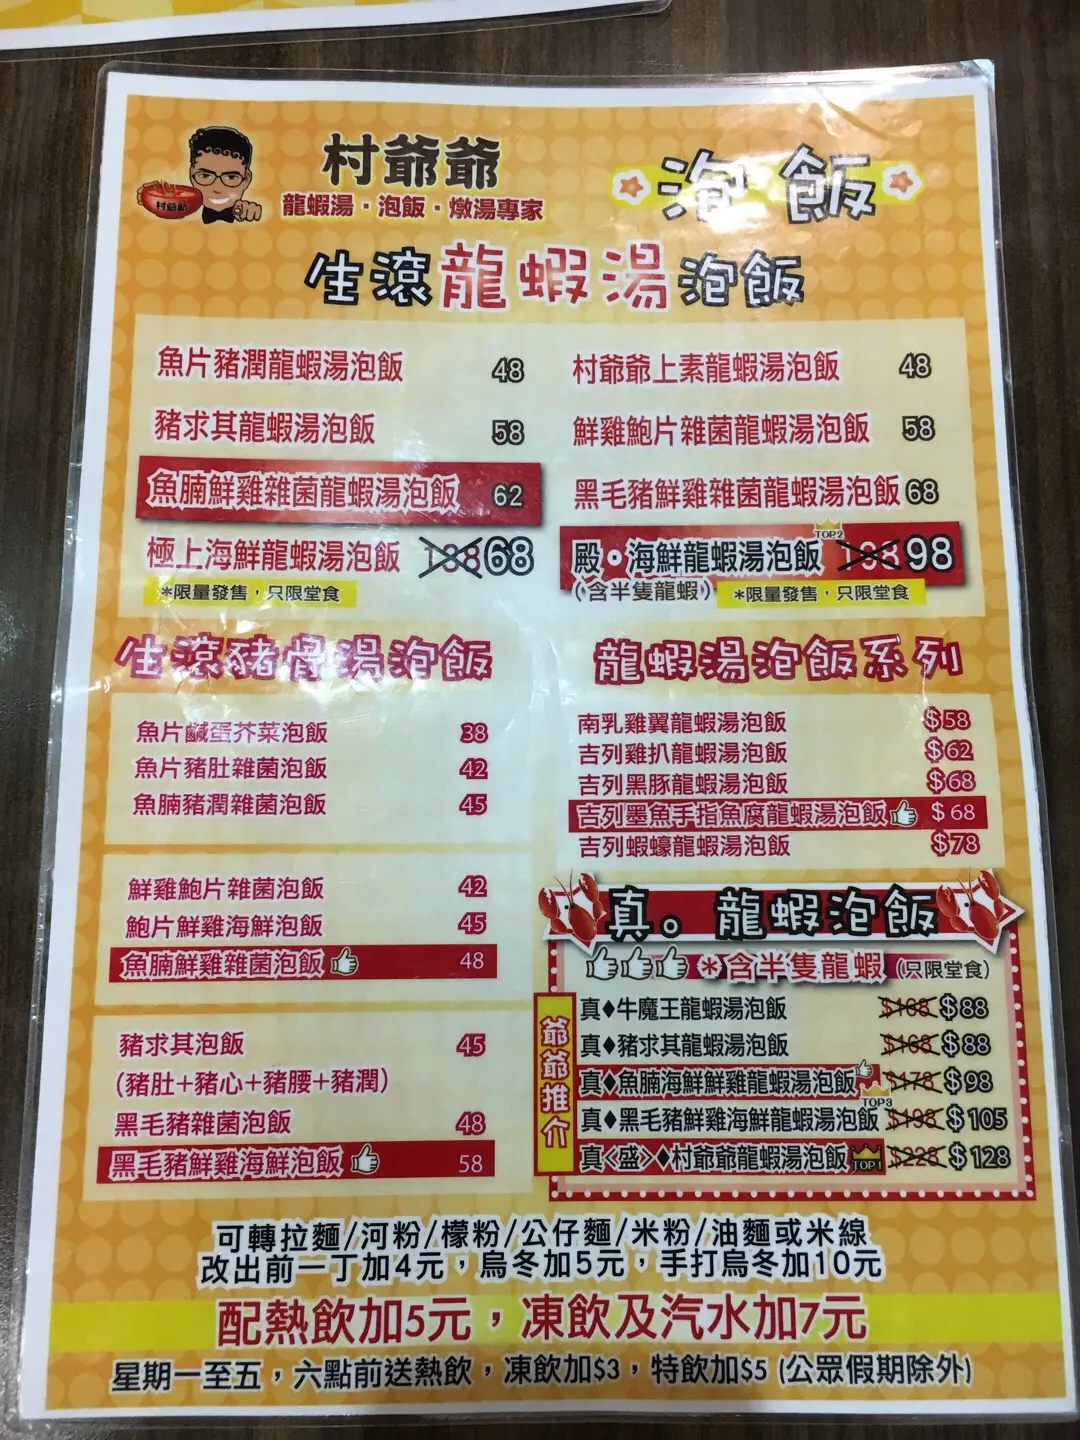 村爺爺
村爺爺
龍蝦湯・泡飯・燉湯專家
泡飯
生滾龍蝦湯泡飯
魚片豬潤龍蝦湯泡飯 48
豬求其龍蝦湯泡飯 58
魚腩鮮雞雜菌龍蝦湯泡飯 62
極上海鮮龍蝦湯泡飯 138 68
*限量發售，只限堂食
村爺爺上素龍蝦湯泡飯 48
鮮雞鮑片雜菌龍蝦湯泡飯 58
黑毛豬鮮雞雜菌龍蝦湯泡飯 68
TOP2
殿・海鮮龍蝦湯泡飯 198 98
（含半隻龍蝦） *限量發售，只限堂食
生滾豬骨湯泡飯
魚片鹹蛋芥菜泡飯 38
魚片豬肚雜菌泡飯 42
魚腩豬潤雜菌泡飯 45
鮮雞鮑片雜菌泡飯 42
鮑片鮮雞海鮮泡飯 45
魚腩鮮雞雜菌泡飯 48
豬求其泡飯 45
（豬肚+豬心+豬腰+豬潤）
黑毛豬雜菌泡飯 48
黑毛豬鮮雞海鮮泡飯 58
龍蝦湯泡飯系列
南乳雞翼龍蝦湯泡飯 $58
吉列雞扒龍蝦湯泡飯 $62
吉列黑豚龍蝦湯泡飯 $68
吉列墨魚手指魚腐龍蝦湯泡飯 $68
吉列蝦蠔龍蝦湯泡飯 $78
真。龍蝦泡飯
*含半隻龍蝦（只限堂食）
爺爺推介
真♦牛魔王龍蝦湯泡飯 $168 $88
真♦豬求其龍蝦湯泡飯 $168 $88
真♦魚腩海鮮鮮雞龍蝦湯泡飯 $178 $98
TOP3
真♦黑毛豬鮮雞海鮮龍蝦湯泡飯 $198 $105
真<盛>♦村爺爺龍蝦湯泡飯 TOP1 $228 $128
可轉拉麵/河粉/檬粉/公仔麵/米粉/油麵或米線
改出前一丁加4元，烏冬加5元，手打烏冬加10元
配熱飲加5元，凍飲及汽水加7元
星期一至五，六點前送熱飲，凍飲加$3，特飲加$5 (公眾假期除外)